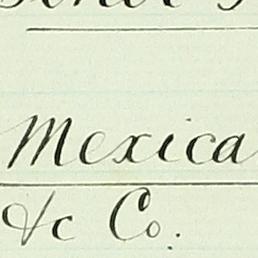 Mexica
&c Co.